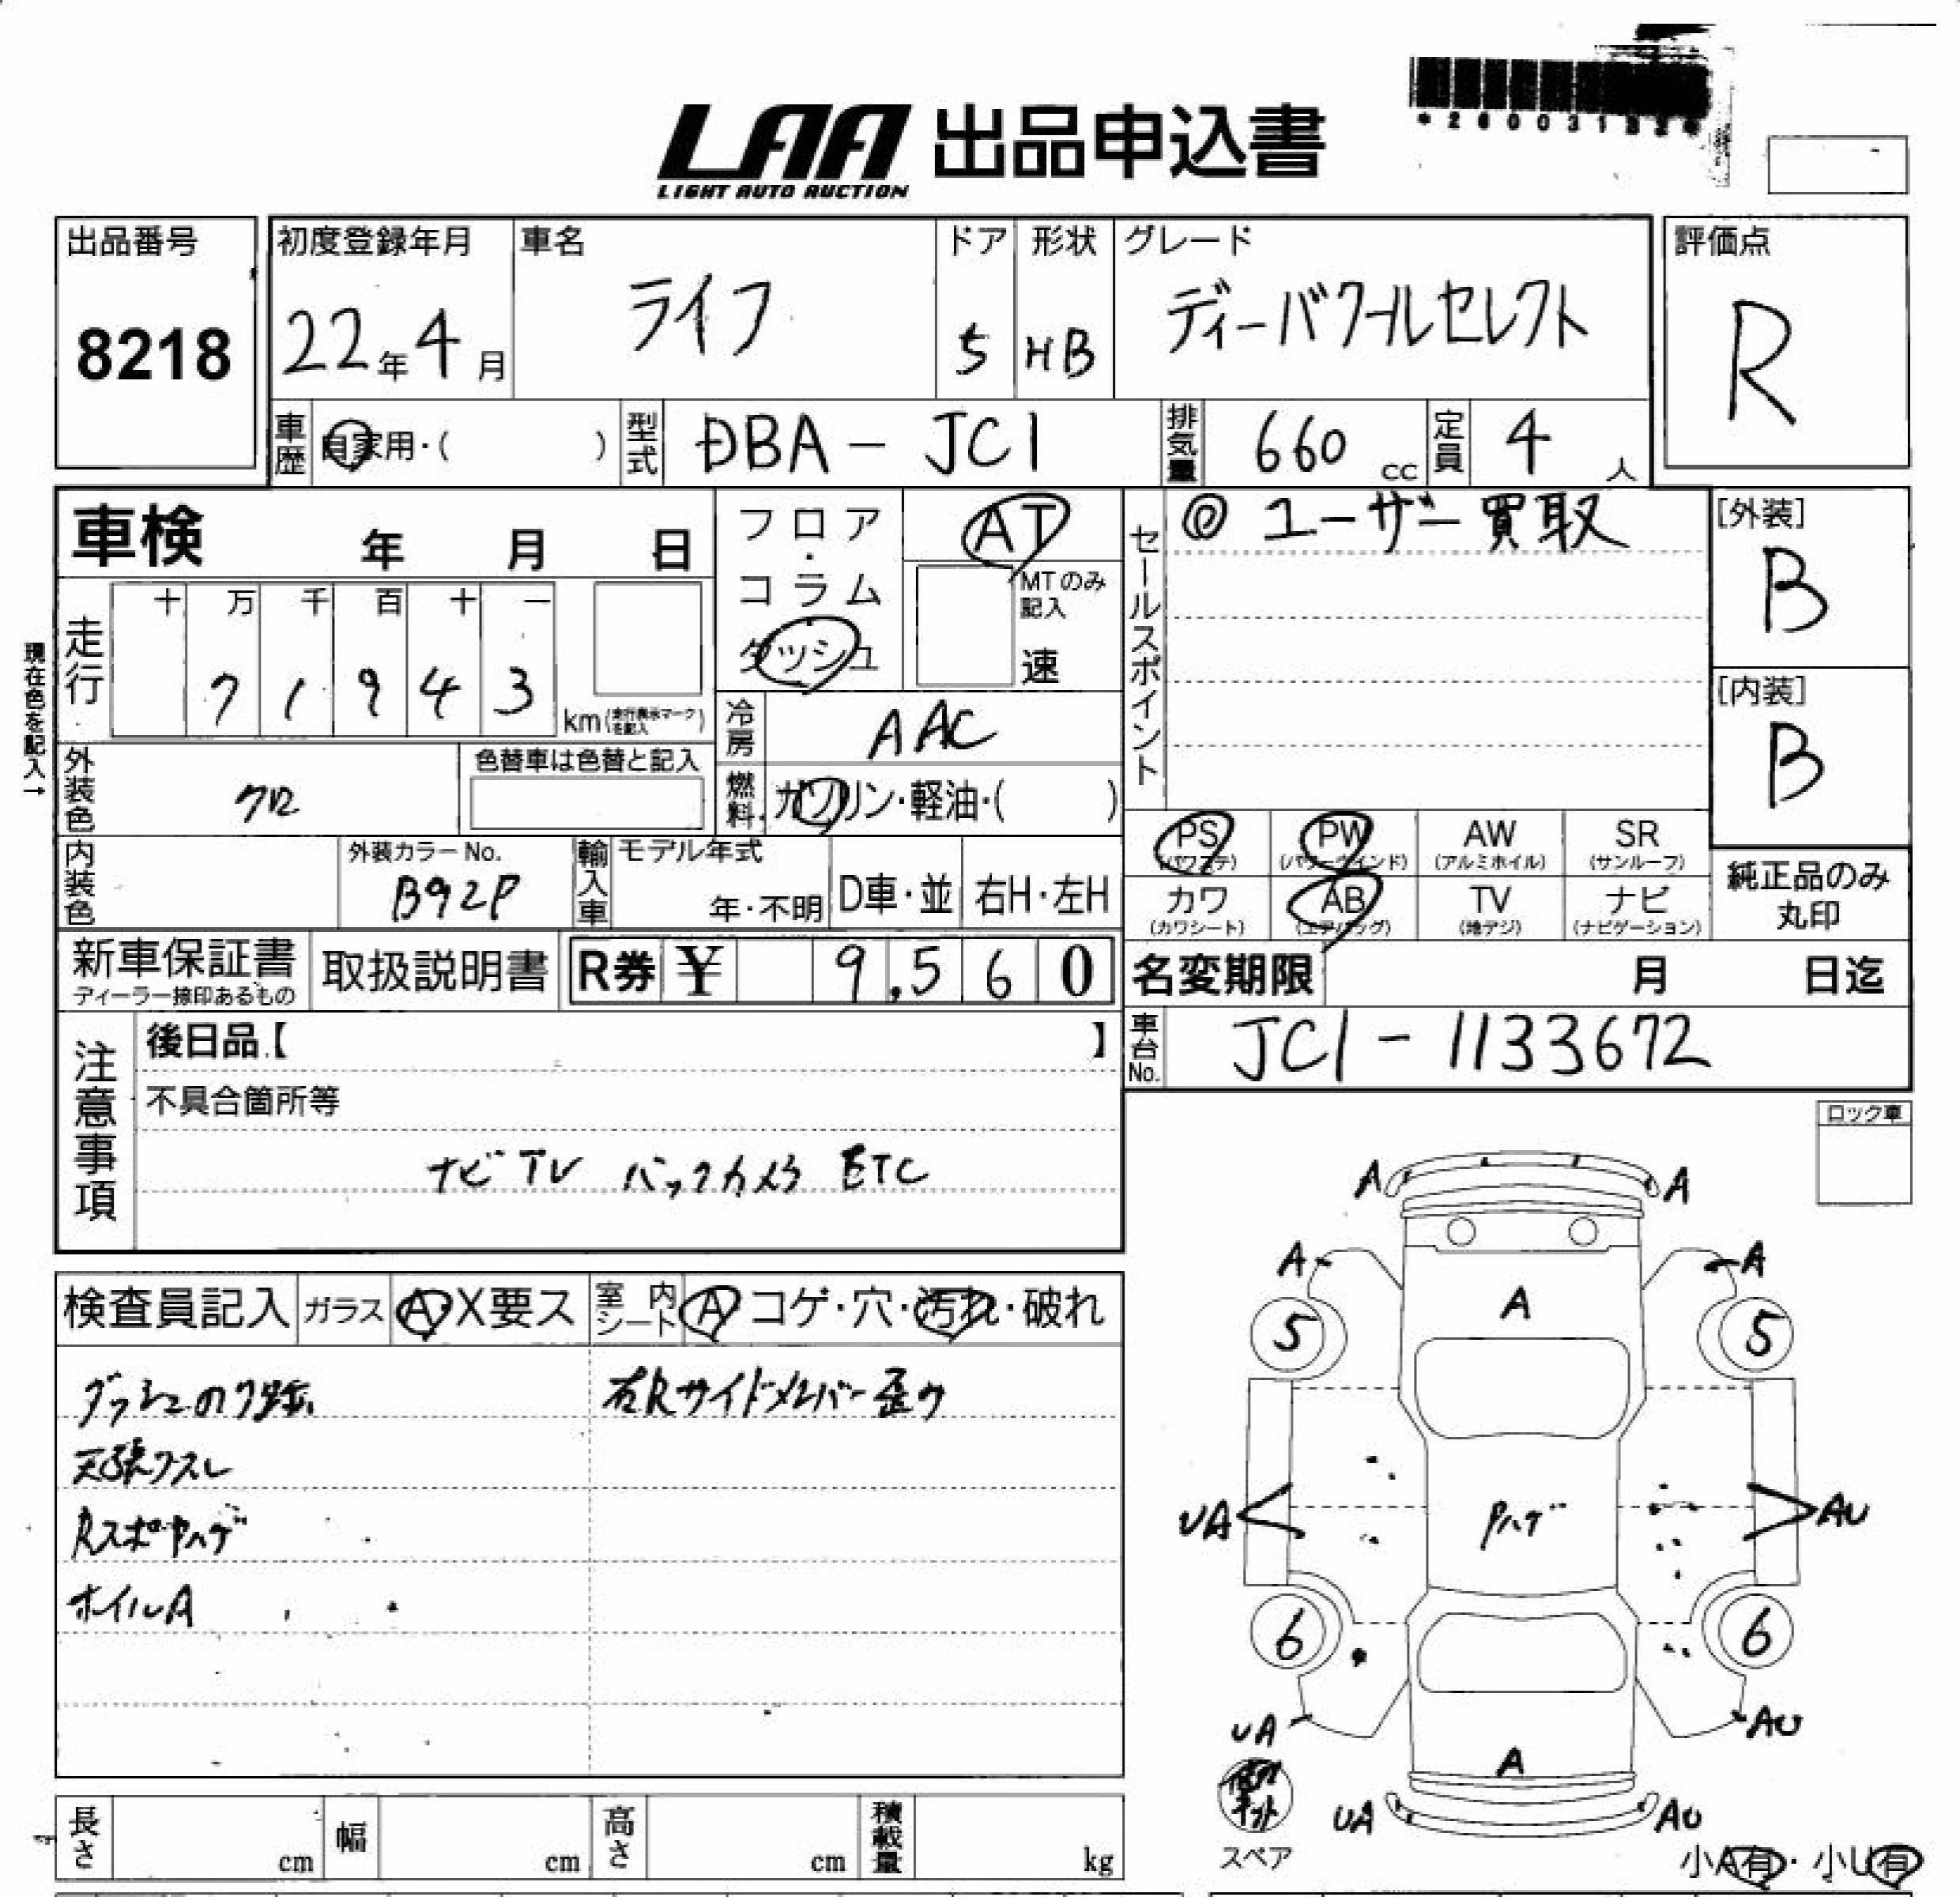 LAA 出品申込書
LIGHT AUTO AUCTION
出品番号
8218
初度登録年月
22年4月
車名
ライフ
ドア
5
形状
HB
グレード
ディーバクールセレクト
評価点
R
車歴
自家用・( )
型式
DBA-JC1
排気量
660 cc
定員
4人
車検 年 月 日
フロア・コラム・ダッシュ
AT
MTのみ記入
速
セールスポイント
◎ユーザー買取
[外装]
B
[内装]
B
現在色を記入→
走行
十 万 千 百 十 一
7 1 9 4 3
km(走行表示マークを記入)
冷房
AAC
燃料
ガソリン・軽油・( )
外装色
クロ
色替車は色替と記入
内装色
外装カラーNo.
B92P
輸入車
モデル年式
年・不明
D車・並
右H・左H
PS (パワステ)
PW (パワーウインド)
AW (アルミホイル)
SR (サンルーフ)
カワ (カワシート)
AB (エアバッグ)
TV (地デジ)
ナビ (ナビゲーション)
純正品のみ丸印
新車保証書
ディーラー捺印あるもの
取扱説明書
R券 ¥ 9,560
名変期限 月 日迄
車台No.
JC1-1133672
注意事項
後日品【 】
不具合箇所等
ナビ TV バックカメラ ETC
ロック車
検査員記入
ガラス
A・X要ス
室内シート
A コゲ・穴・汚れ・破れ
ダッシュのり跡
右Rサイドメンバー歪み
天張リスレ
RスポPハゲ
ホイルA
A A
A A
A
5 5
UA AU
Pハゲ
6 6
UA AU
A
UA AU
スペア
小A有・小U有
長さ cm
幅 cm
高さ cm
積載量 kg